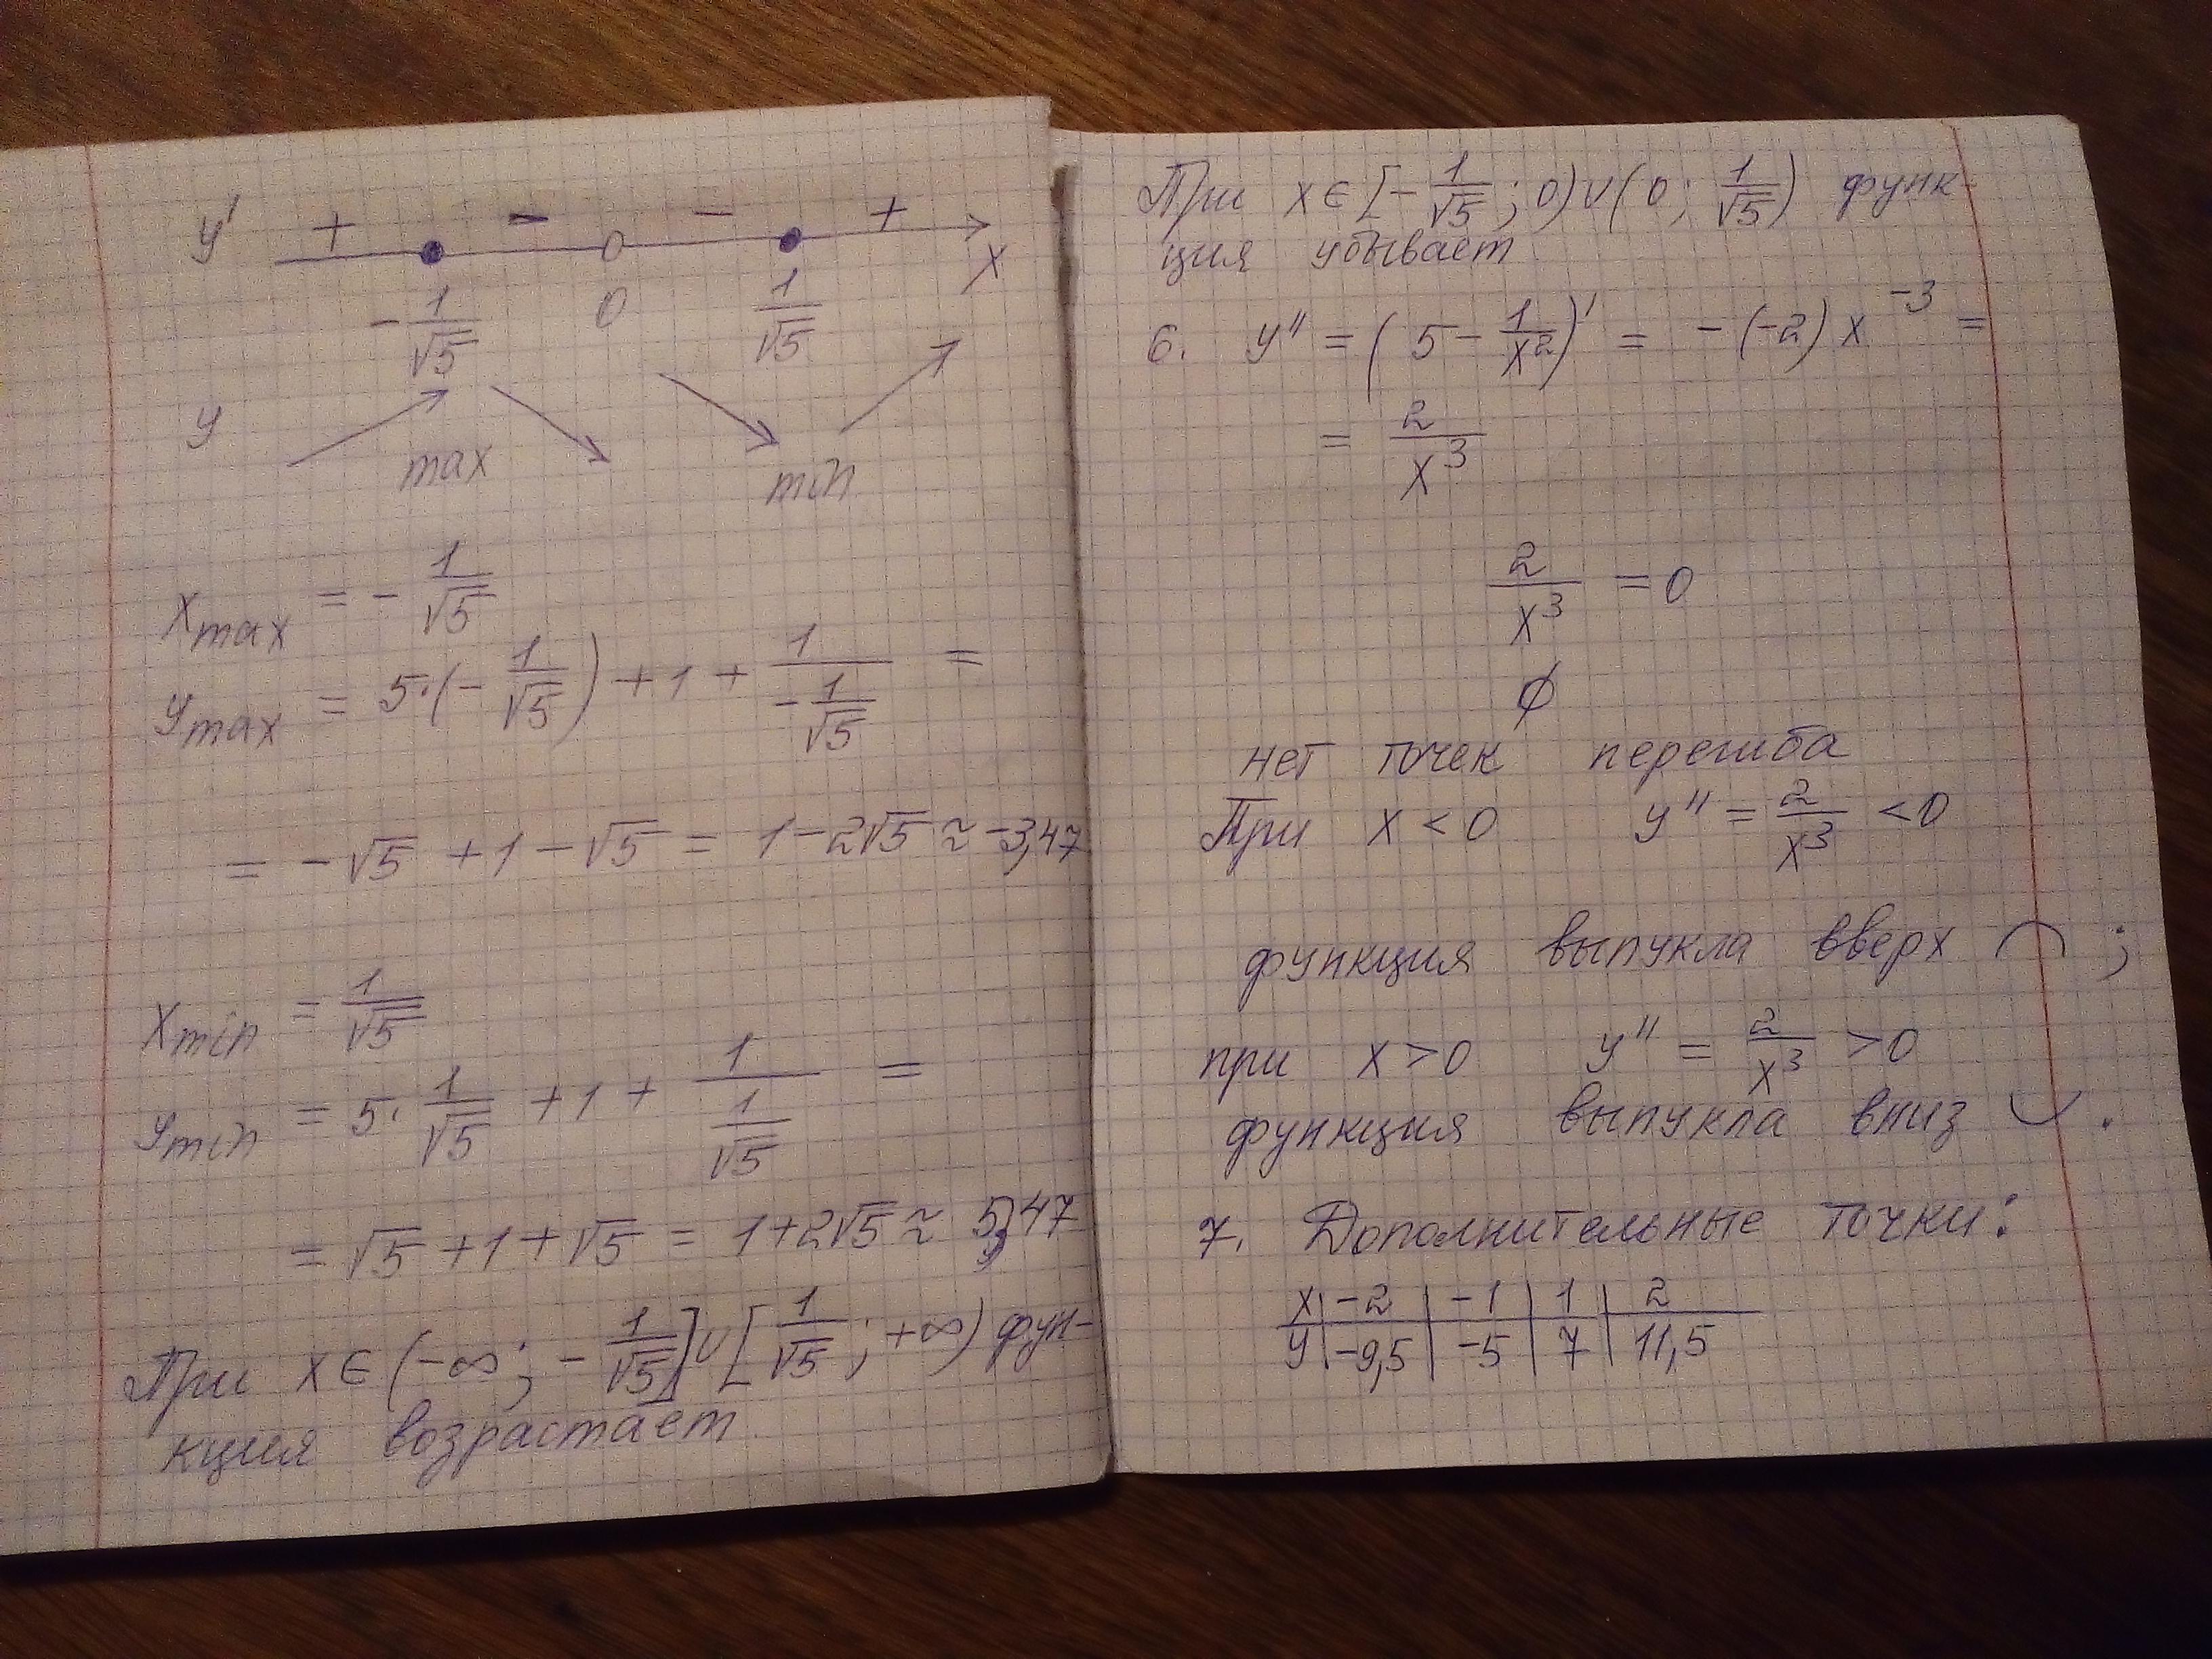 y' + − − + x
−1/√5 0 1/√5
y max min
x max = −1/√5
y max = 5·(−1/√5) + 1 + 1/(−1/√5) =
= −√5 + 1 − √5 = 1 − 2√5 ≈ −3,47
x min = 1/√5
y min = 5·1/√5 + 1 + 1/(1/√5) =
= √5 + 1 + √5 = 1 + 2√5 ≈ 5,47
При x ∈ (−∞; −1/√5] ∪ [1/√5; +∞) фун-
кция возрастает
При x ∈ [−1/√5; 0) ∪ (0; 1/√5) функ-
ция убывает
6. y'' = (5 − 1/x²)' = −(−2)x⁻³ =
= 2/x³
2/x³ = 0
∅
нет точек перегиба
При x < 0 y'' = 2/x³ < 0
функция выпукла вверх ⌒ ;
при x > 0 y'' = 2/x³ > 0
функция выпукла вниз ◡ .
7. Дополнительные точки:
x | −2 | −1 | 1 | 2
y | −9,5 | −5 | 7 | 11,5